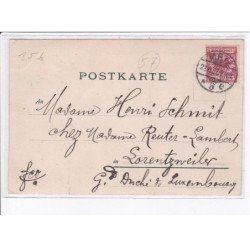 254
57
POSTKARTE
Madame Henri Schmit
chez Madame Reuter-Lambert
Lorentzweiler
Gd Duché de Luxembourg